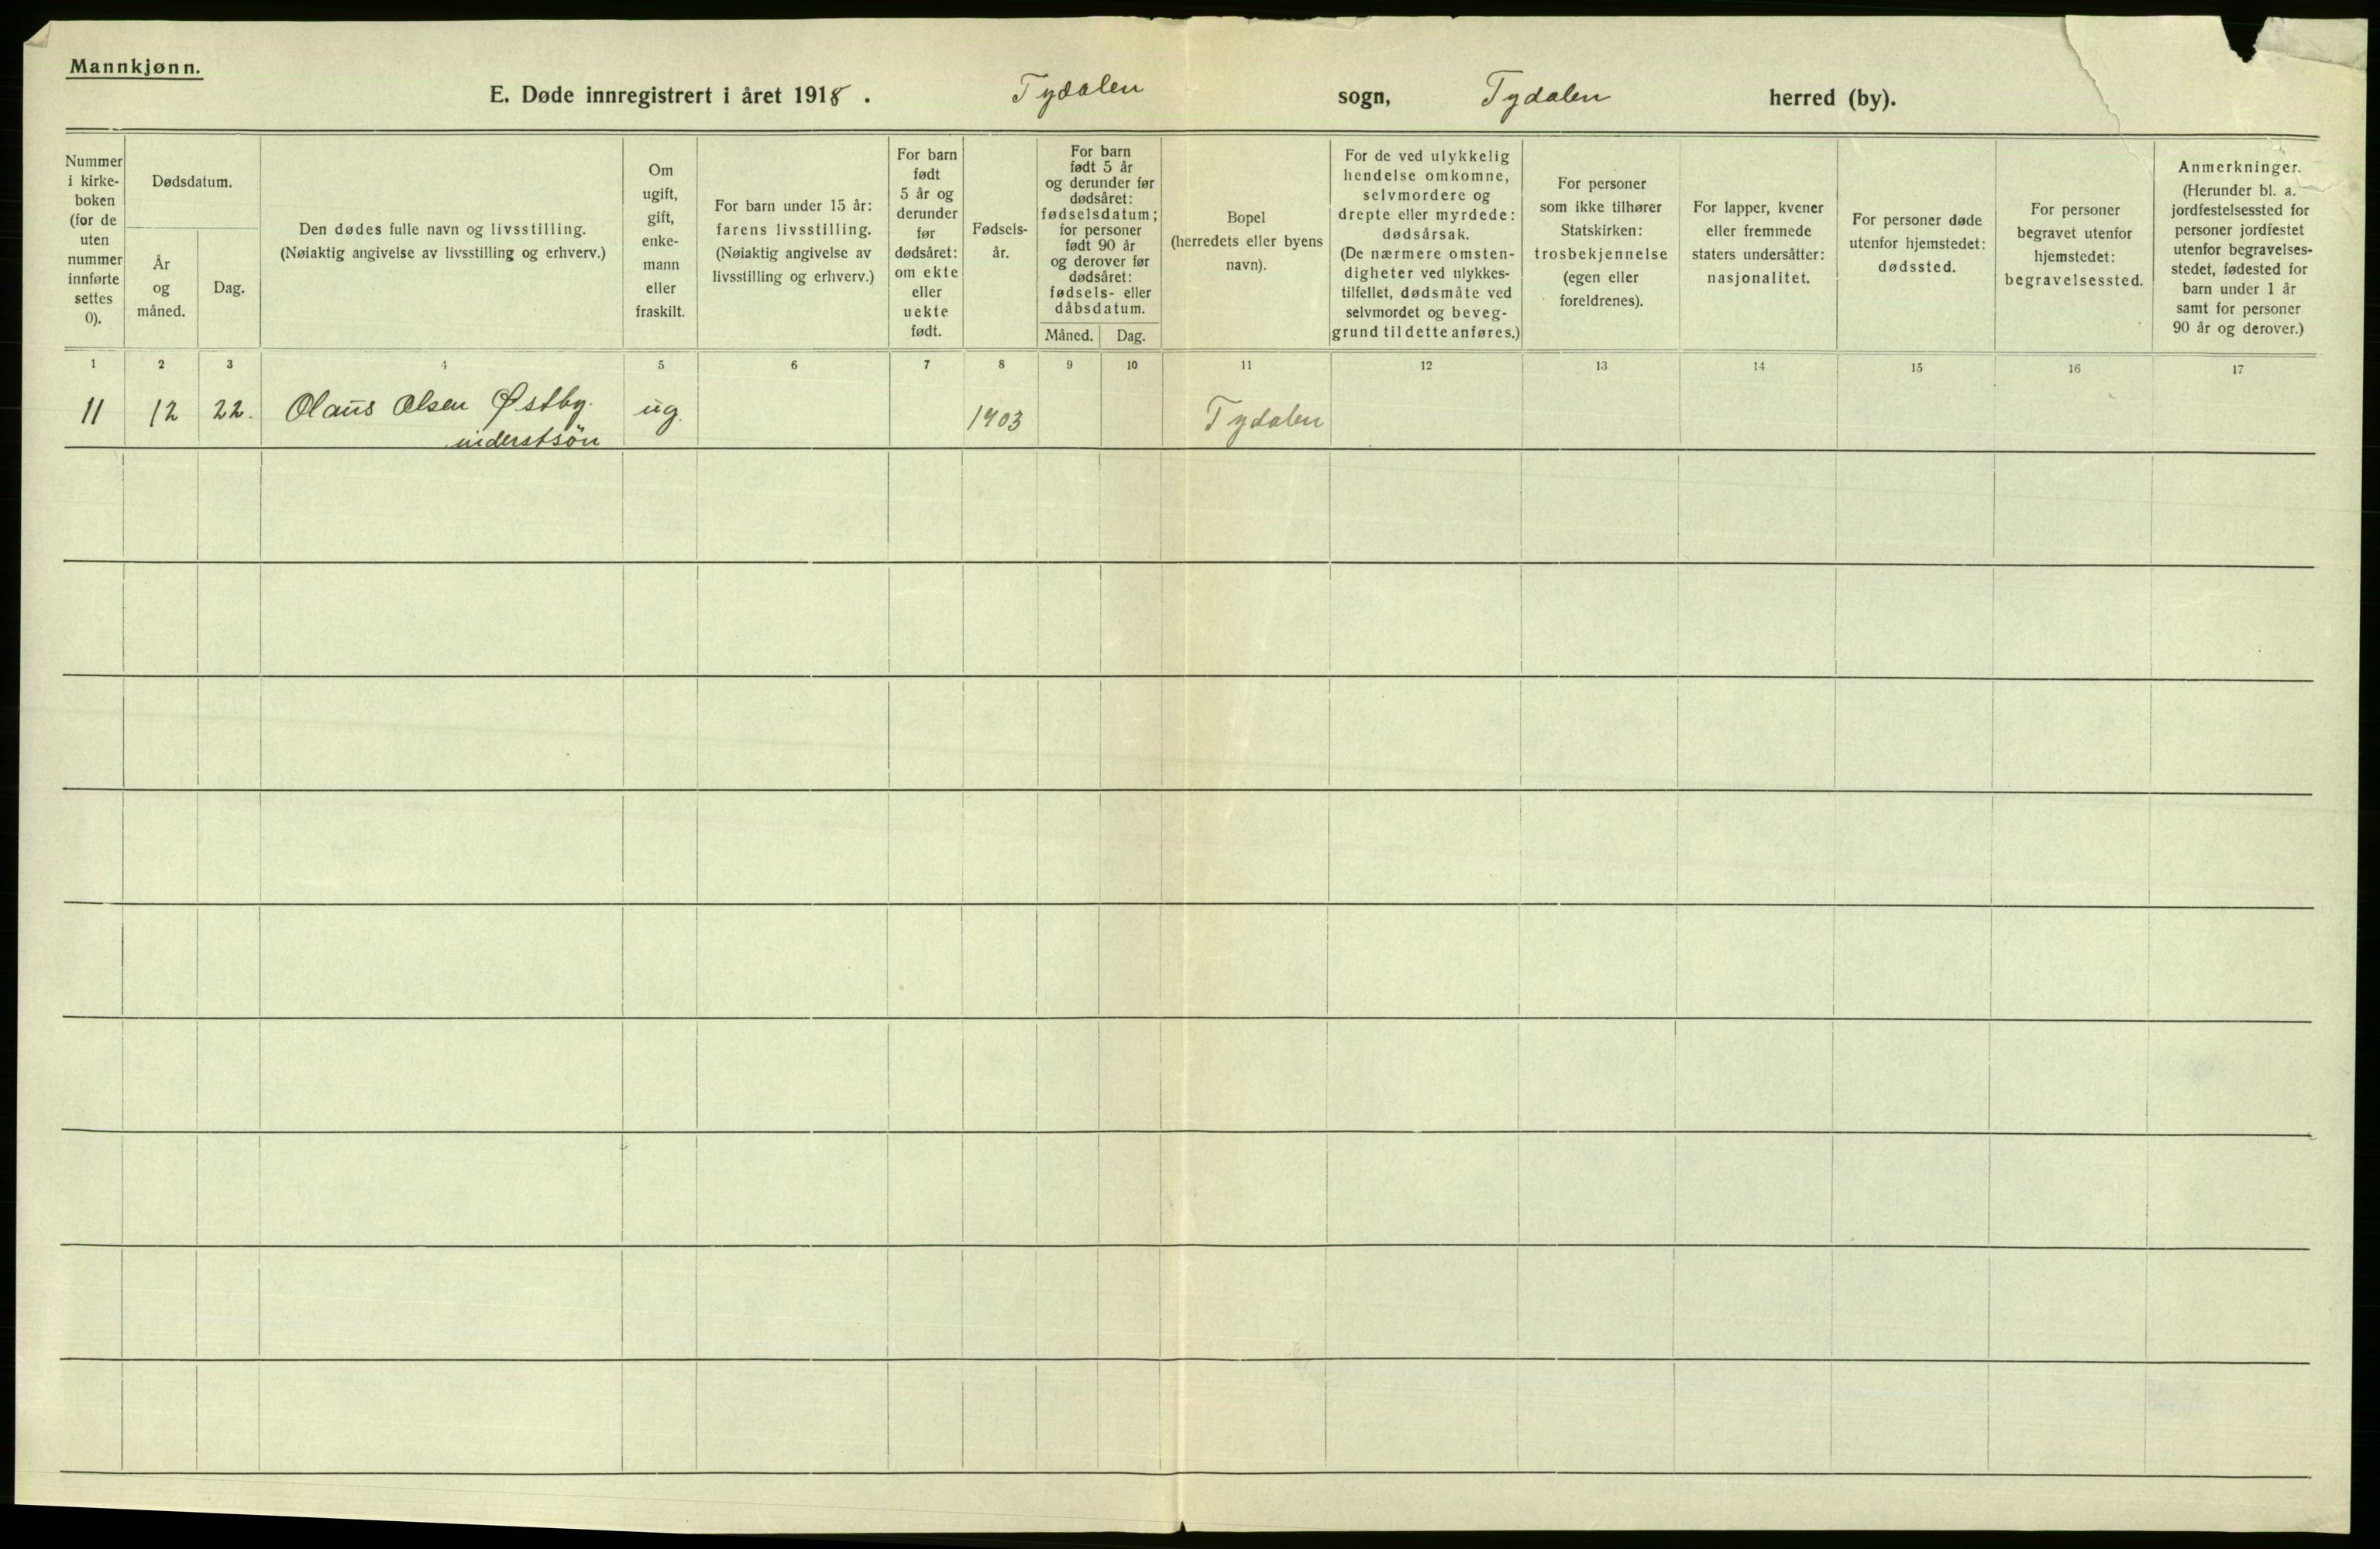 Mannkjønn.
E. Døde innregistrert i året 1918. Tydalen sogn, Tydalen herred (by).
Nummer
i kirke-
boken
(for de
uten
nummer
innførte
settes
0).
Dødsdatum.
År
og
måned.
Dag.
Den dødes fulle navn og livsstilling.
(Nøiaktig angivelse av livsstilling og erhverv.)
Om
ugift,
gift,
enke-
mann
eller
fraskilt.
For barn under 15 år:
farens livsstilling.
(Nøiaktig angivelse av
livsstilling og erhverv.)
For barn
født
5 år og
derunder
før
dødsåret:
om ekte
eller
uekte
født.
Fødsels-
år.
For barn
født 5 år
og derunder før
dødsåret:
fødselsdatum;
for personer
født 90 år
og derover før
dødsåret:
fødsels- eller
dåbsdatum.
Måned. Dag.
Bopel
(herredets eller byens
navn).
For de ved ulykkelig
hendelse omkomne,
selvmordere og
drepte eller myrdede:
dødsårsak.
(De nærmere omsten-
digheter ved ulykkes-
tilfellet, dødsmåte ved
selvmordet og beveg-
grund til dette anføres.)
For personer
som ikke tilhører
Statskirken:
trosbekjennelse
(egen eller
foreldrenes).
For lapper, kvener
eller fremmede
staters undersåtter:
nasjonalitet.
For personer døde
utenfor hjemstedet:
dødssted.
For personer
begravet utenfor
hjemstedet:
begravelsessted.
Anmerkninger.
(Herunder bl. a.
jordfestelsessted for
personer jordfestet
utenfor begravelses-
stedet, fødested for
barn under 1 år
samt for personer
90 år og derover.)
1 2 3 4 5 6 7 8 9 10 11 12 13 14 15 16 17
11 12 22. Olaus Olsen Østby. ug. 1903 Tydalen
inderstsøn